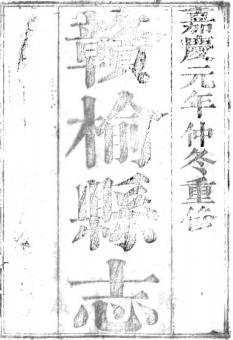 嘉慶元年仲冬重修
贛榆縣志